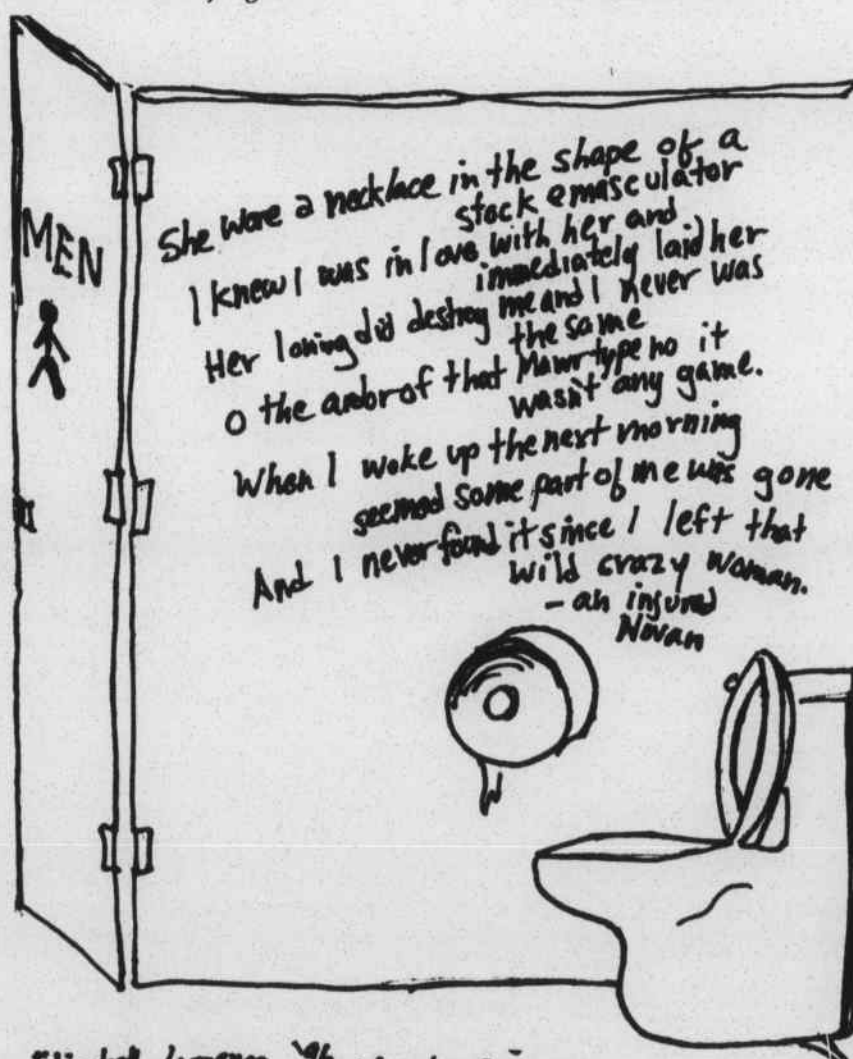 MEN
She wore a necklace in the shape of a
stock emasculator
I knew I was in love with her and
immediately laid her
Her loving did destroy me and I never was
the same
O the ardor of that Mawrtype no it
wasn't any game.
When I woke up the next morning
seemed some part of me was gone
And I never found it since I left that
wild crazy woman.
- an
Novan